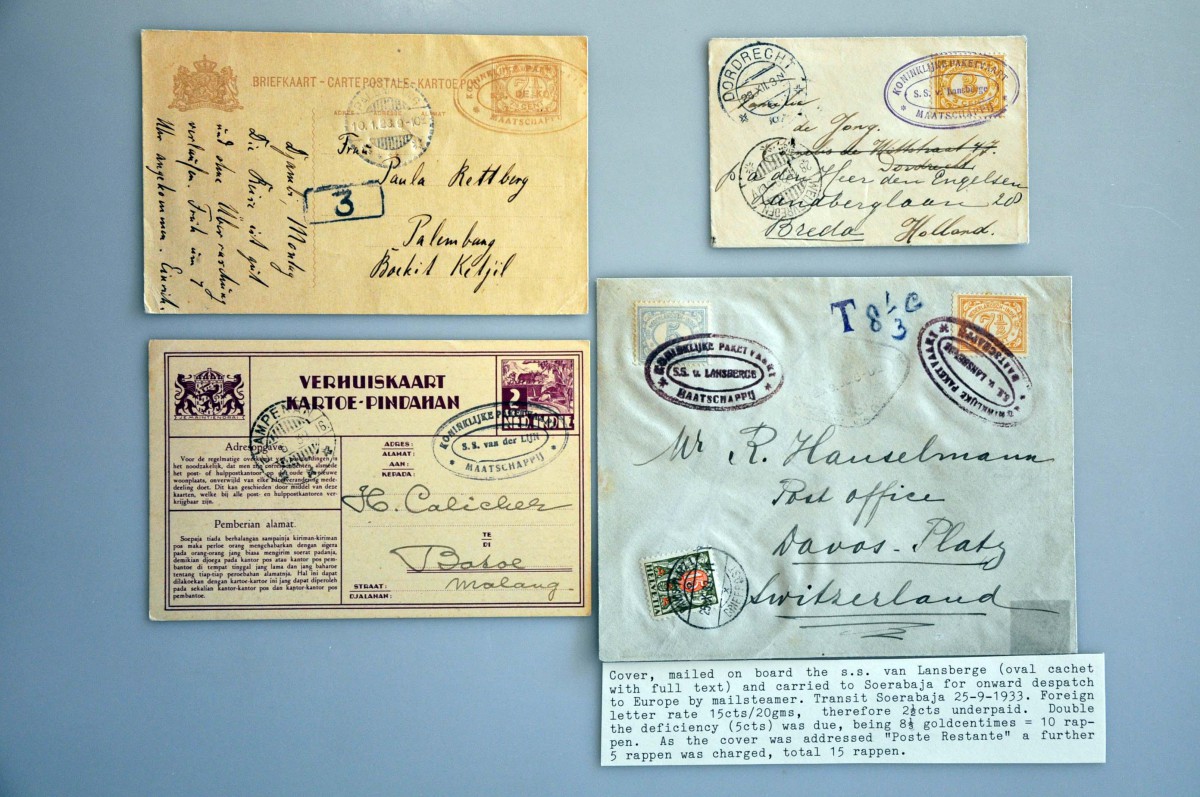 BRIEFKAART - CARTE POSTALE - KARTOEPO
KONINKLIJKE PAKET
MAATSCHAPPIJ
10.1.23.9-10
Djambi, Montag
Die Reise ist gut
und ohne Überraschung
verlaufen. Früh um 7
Uhr angekommen.
3
Frau
Paula Rettberg
Palembang
Boekit Ketjil
DORDRECHT
KONINKLIJKE PAKETVAART
S.S. v. Lansberge
MAATSCHAPPIJ
de Jong.
Dordrecht
p/a den Heer den Engelsen
Zandberglaan 20
Breda Holland.
VERHUISKAART
KARTOE-PINDAHAN
2
JE MAINTIENDRAI
KONINKLIJKE PAKETVAART
S.S. van der LIJN
MAATSCHAPPIJ
Adresopgave
Voor de regelmatige
het noodzakelijk, dat men
het post- of hulppostkantoor oude
woonplaats, onverwijld van elke mede-
deeling doet. Dit kan geschieden door middel van deze
kaarten, welke bij alle post- en hulppostkantoren ver-
krijgbaar zijn.
Pemberian alamat.
Soepaja tiada berhalangan sampainja kiriman-kiriman
pos maka perloe orang mengchabarkan dengan sigera
pada orang-orang jang biasa mengirim soerat padanja,
demikian djoega pada kantor pos atau kantor pos pem-
bantoe di tempat tinggal jang lama dan jang baharoe
tentang tiap-tiap peroebahan alamatnja. Hal ini dapat
dilakoekan dengan kartoe-kartoe ini jang dapat diperoleh
pada sekalian kantor-kantor pos dan kantor-kantor pos
pembantoe.
ADRES:
ALAMAT:
AAN:
KEPADA:
H. Calicher
TE
DI
Batoe
Malang.
STRAAT:
DJALANAN:
5
T 8 1/3 c
7½
KONINKLIJKE PAKETVAART
S.S. v. LANSBERGE
MAATSCHAPPIJ
KONINKLIJKE PAKETVAART
S.S. v. LANSBERGE
MAATSCHAPPIJ
Mr R. Hanselmann
Post office
Davos-Platz
Switzerland
HELVETIA
Cover, mailed on board the s.s. van Lansberge (oval cachet
with full text) and carried to Soerabaja for onward despatch
to Europe by mailsteamer. Transit Soerabaja 25-9-1933. Foreign
letter rate 15cts/20gms, therefore 2½cts underpaid. Double
the deficiency (5cts) was due, being 8⅓ goldcentimes = 10 rap-
pen. As the cover was addressed "Poste Restante" a further
5 rappen was charged, total 15 rappen.